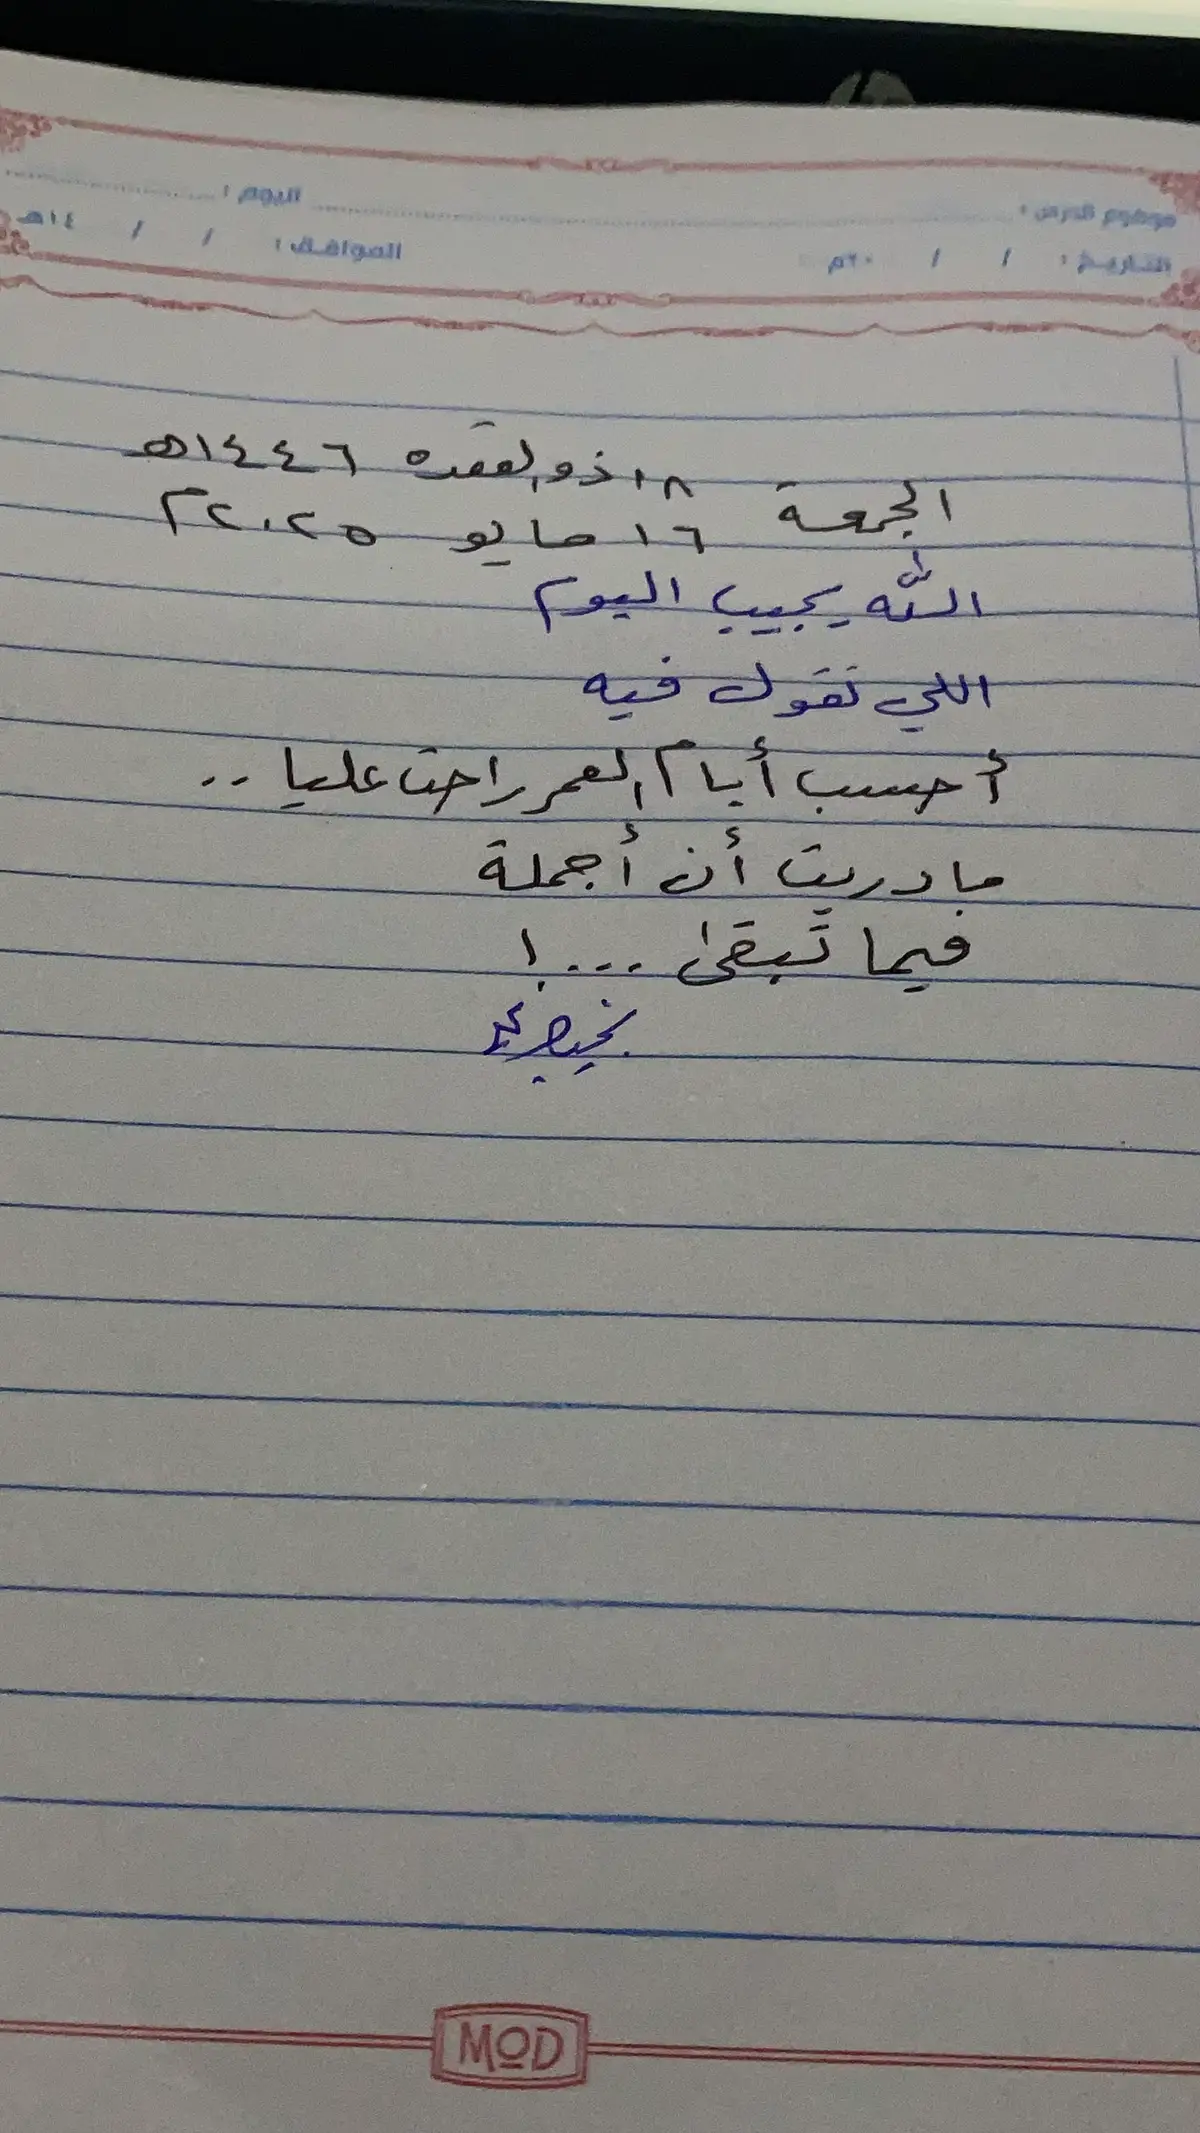 موضوع الدرس : اليوم :
التاريخ : / / ٢٠م الموافق : / / ١٤هـ
الجمعة ١٨ ذو القعده ١٤٤٦هـ
١٦ مايو ٢٠٢٥م
الله يجيب اليوم
اللي تقول فيه
أحسب أيام العمر راحت عليا ..
مادريت أن أجملة
فيما تبقى ...!
MOD